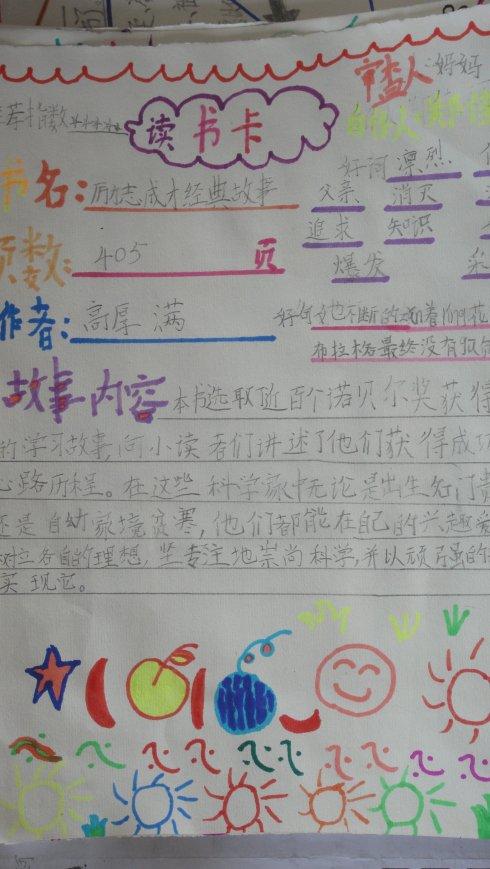 审查人：妈妈
荐指数
读书卡
好词 凛烈
书名：励志成才经典故事
父亲 消灭
追求 知识
页数：405页
爆发
作者：高厚满
布拉格最终没有
故事内容 本书选取近百个诺贝尔奖获得
的学习故事，向小读者们讲述了他们获得成功
心路历程。在这些科学家中无论是出生名门贵
还是自幼家境寒，他们都能在自己的兴趣爱
对应各自的理想，坚专注地崇尚科学，并以顽强的
实现它。